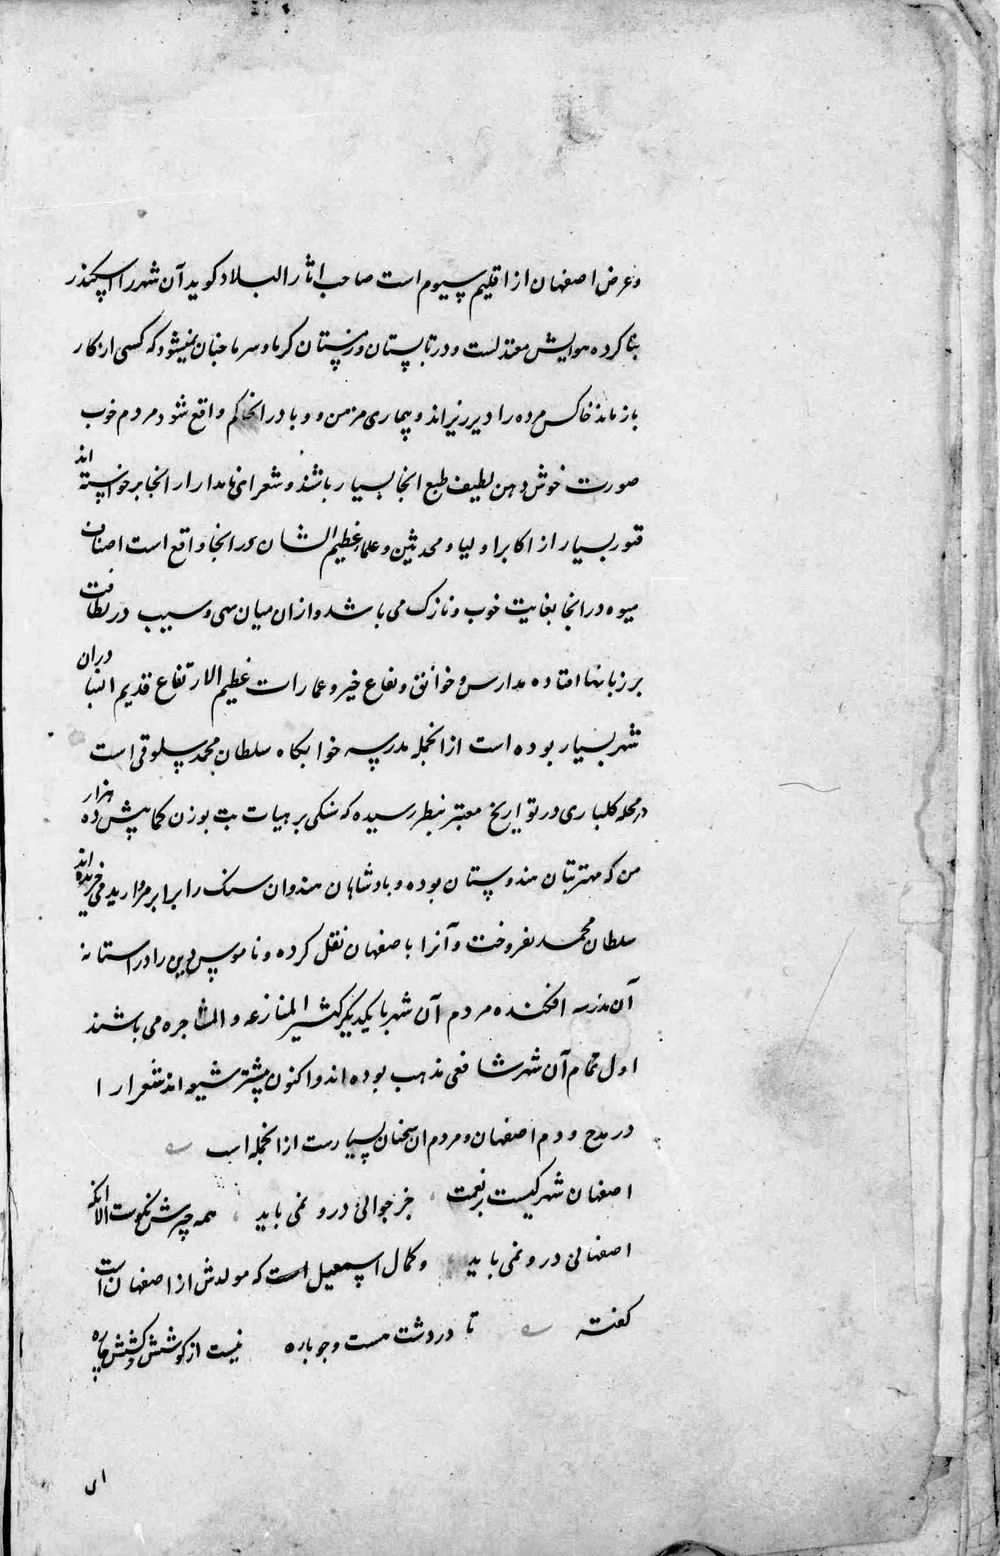 وعرض اصفهان از اقلیم سیوم است صاحب اثار البلاد کوید آن شهر را اسکندر
بنا کرده هوایش معتدلست و در تابستان و زمستان کرما و سرما چنان نمیشود که کسی از کار
باز ماند خاکش مرده را دیر ریزاند و بیماری مزمن و وبا در انجا کم واقع شود مردم خوب
صورت خوش ذهن لطیف طبع انجا بسیار باشند و شعرای نامدار از انجا برخواسته اند
قبور بسیار از اکابر اولیا و محدثین و علماء عظیم الشان در انجا واقع است اصناف
میوه در انجا بغایت خوب و نازک می باشد و از ان میان بهی و سیب در لطافت
بر زبانها افتاده مدارس و خوانق و بقاع خیر و عمارات عظیم الارتفاع قدیم البنا دران
شهر بسیار بوده است از انجمله مدرسه خوابکاه سلطان محمد سلجوقی است
در محله کلباری در تواریخ معتبر بنظر رسیده که سنکی بر هیات بت بوزن کمابیش ده هزار
من که مهتر بتان هندوستان بوده و بادشاهان هندوان سنک را برابر مروارید می خریده اند
سلطان محمد نفروخت و آنرا باصفهان نقل کرده و ناموس دین را در استانه
آن مدرسه افکنده مردم آن شهر با یکدیکر کثیر المنازعه و المشاجره می باشند
اول تمام آن شهر شافعی مذهب بوده اند و اکنون بیشتر شیعه اند شعرا را
در مدح و ذم اصفهان و مردم ان سخنان بسیارست از انجمله است
اصفهان شهر کیست پر نعمت جز جوالی درو نمی باید همه چیزش نکوست الا انکه
اصفهانی درو نمی باید و کمال اسمعیل است که مولدش از اصفهان است
کفته تا در دشت هست و جوباره نیست از کوشش و کشش چاره
ای